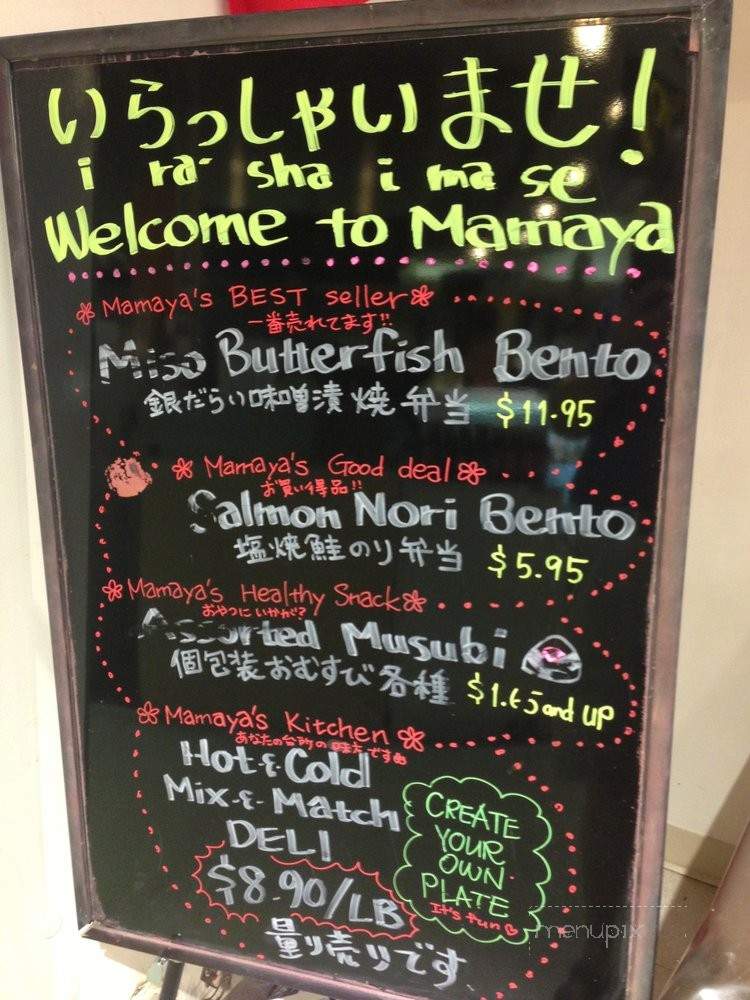 いらっしゃいませ!
i ra- sha i ma se
Welcome to Mamaya
Mamaya's BEST seller
一番売れてます!!
Miso Butterfish Bento
銀だらい味噌漬焼弁当 $11.95
Mamaya's Good deal
お買い得品!!
Salmon Nori Bento
塩焼鮭のり弁当 $5.95
Mamaya's Healthy Snack
おやつにいかが?
Assorted Musubi
個包装おむすび各種 $1.65 and up
Mamaya's Kitchen
あなたの台所の味方です
Hot & Cold
Mix & Match
DELI
$8.90/LB
量り売りです
CREATE
YOUR
OWN
PLATE
It's fun
menupix